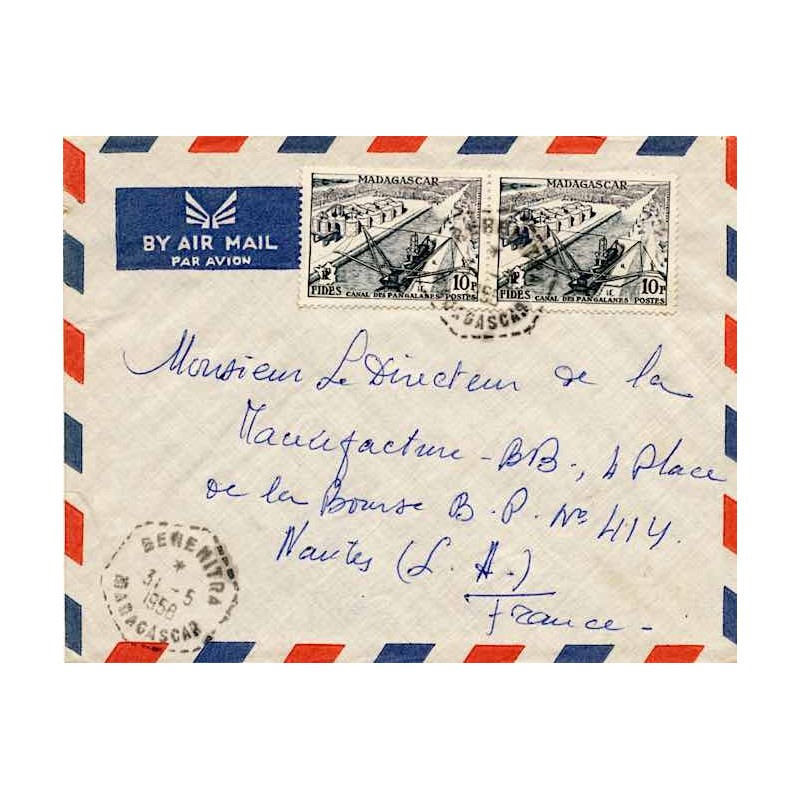 BY AIR MAIL
PAR AVION
MADAGASCAR
10F
FIDES CANAL DES PANGALANES POSTES
MADAGASCAR
10F
FIDES CANAL DES PANGALANES POSTES
MADAGASCAR
Monsieur Le Directeur de la
Manufacture - BB., 4 Place
de la Bourse B. P. No 414.
Nantes (L. A.)
France -
BENENITRA
*
31 - 5
1958
MADAGASCAR